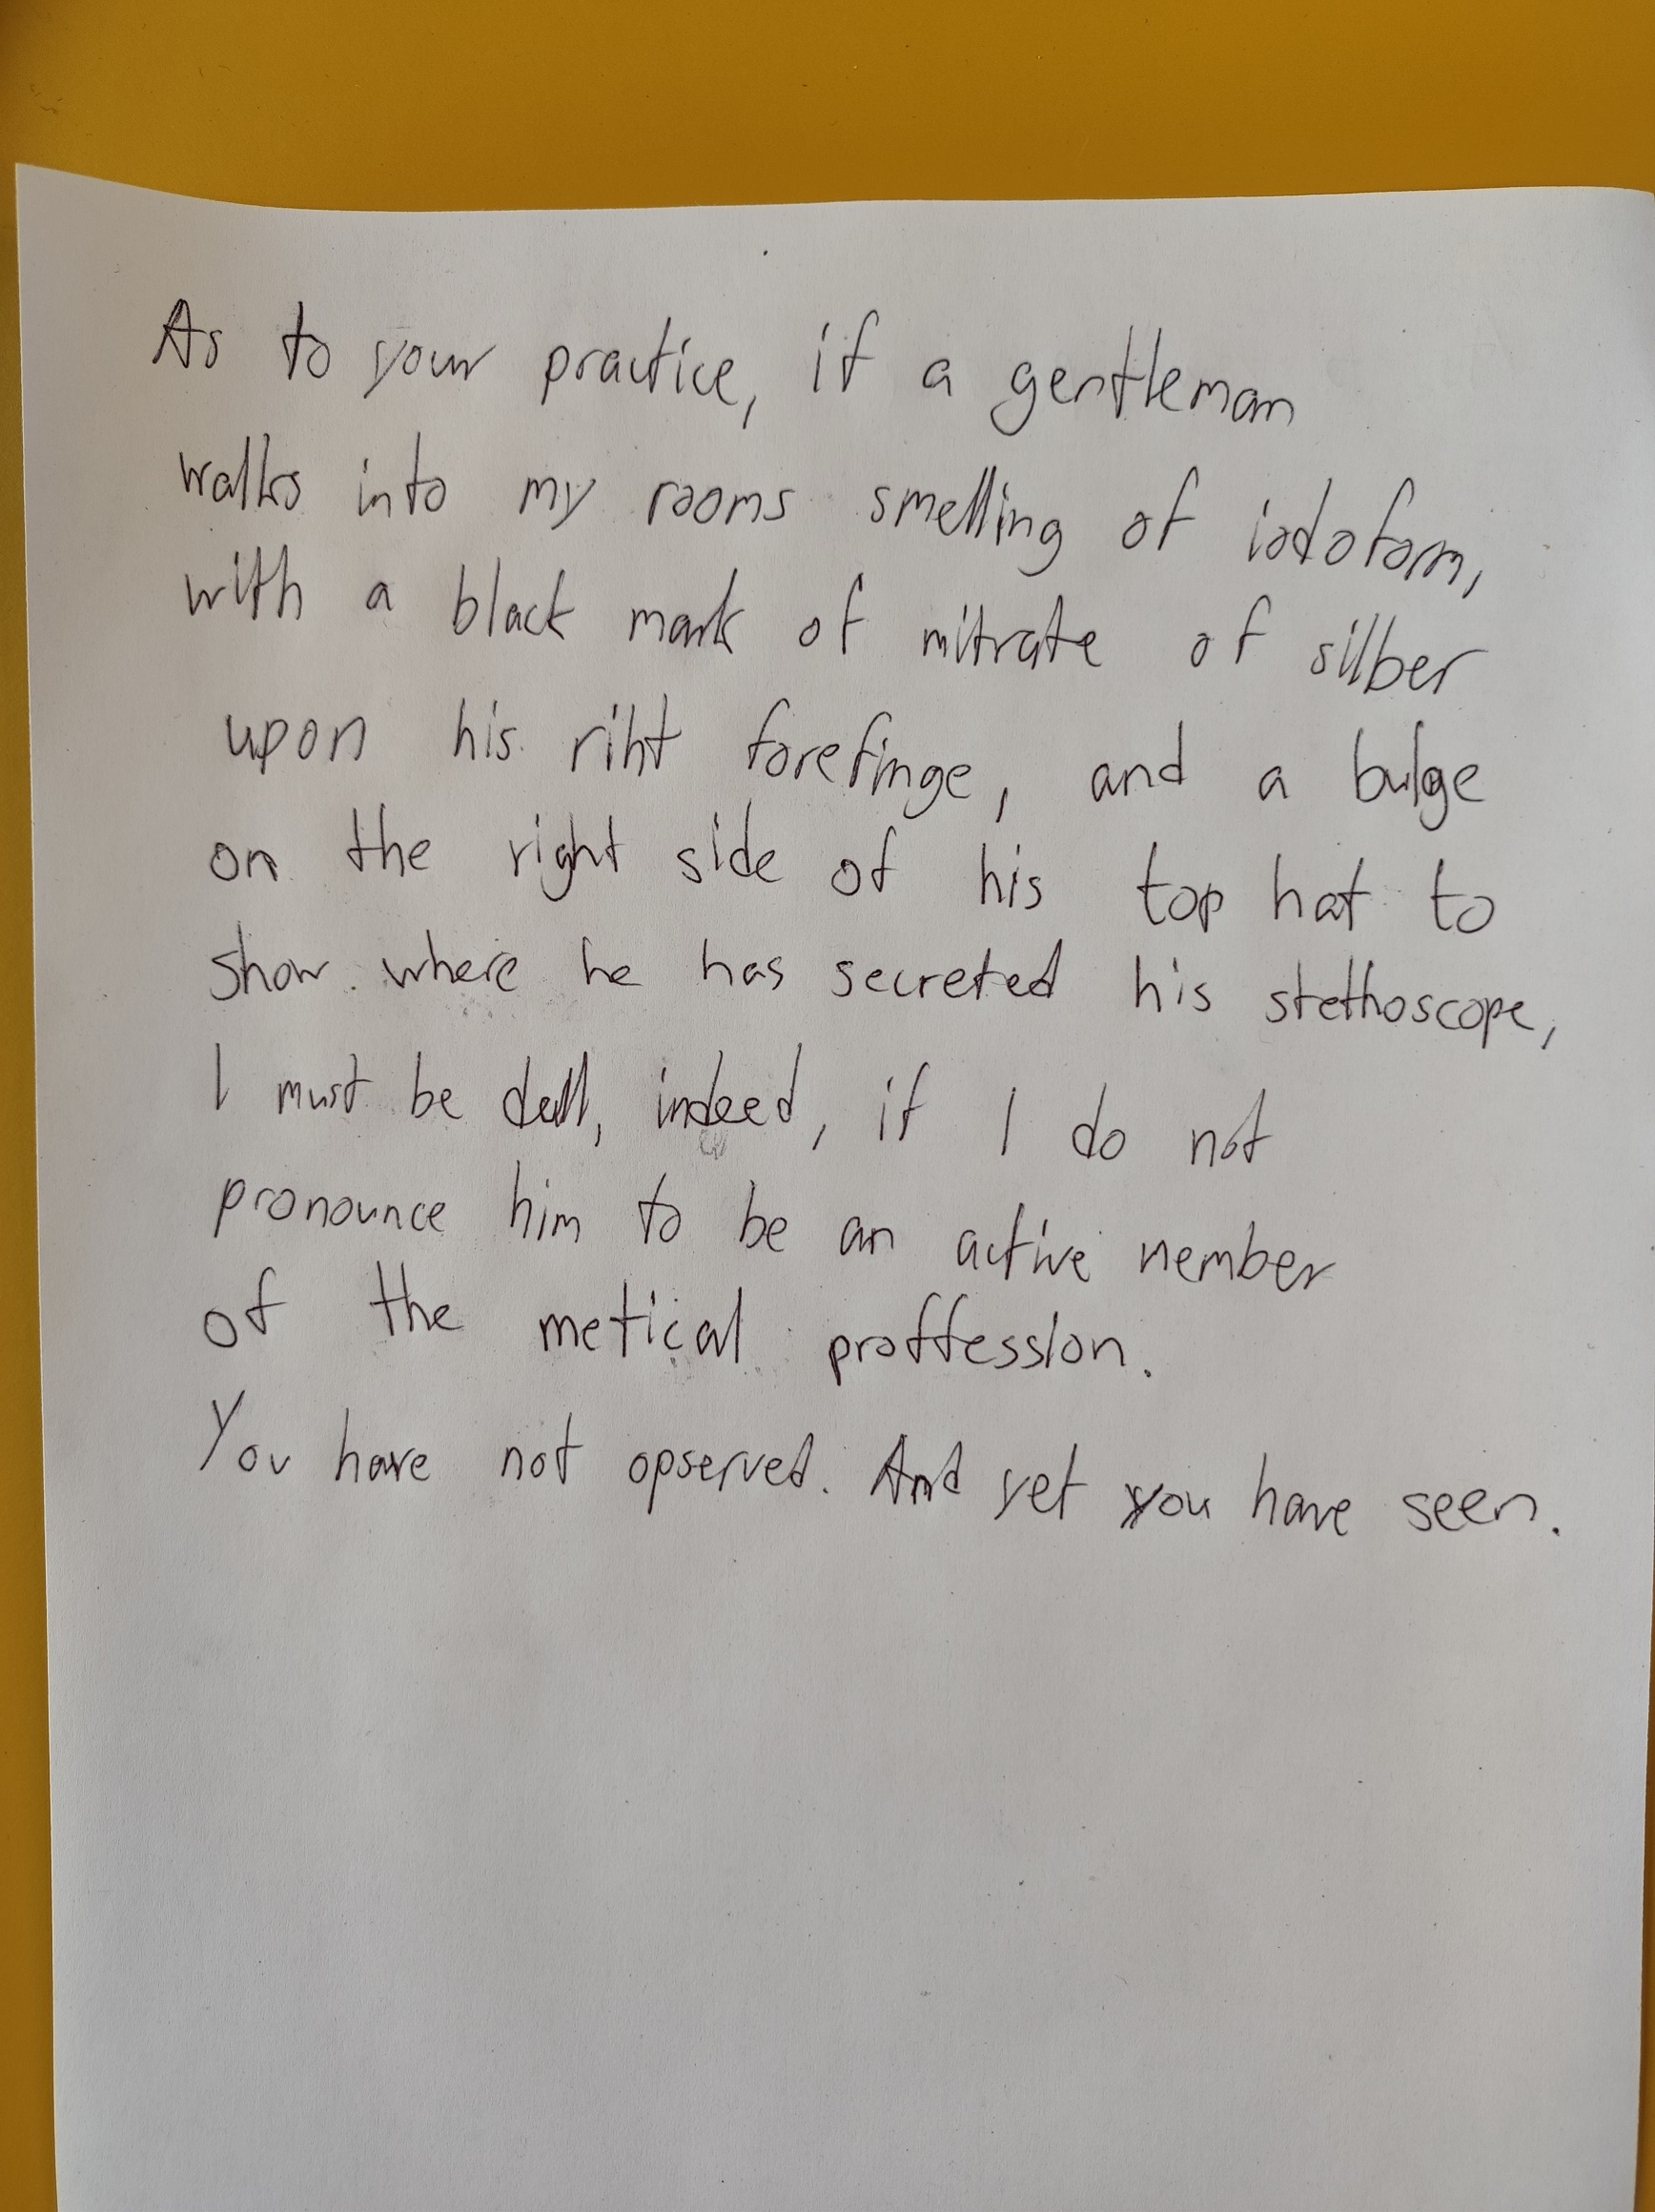 As to your practice, if a gentleman
walks into my rooms smelling of iodoform,
with a black mark of mitrate of silber
upon his riht forefinge, and a bulge
on the right side of his top hat to
show where he has secreted his stethoscope,
I must be dull, indeed, if I do not
pronounce him to be an active nember
of the metical proffession.
You have not opserved. And yet you have seen.